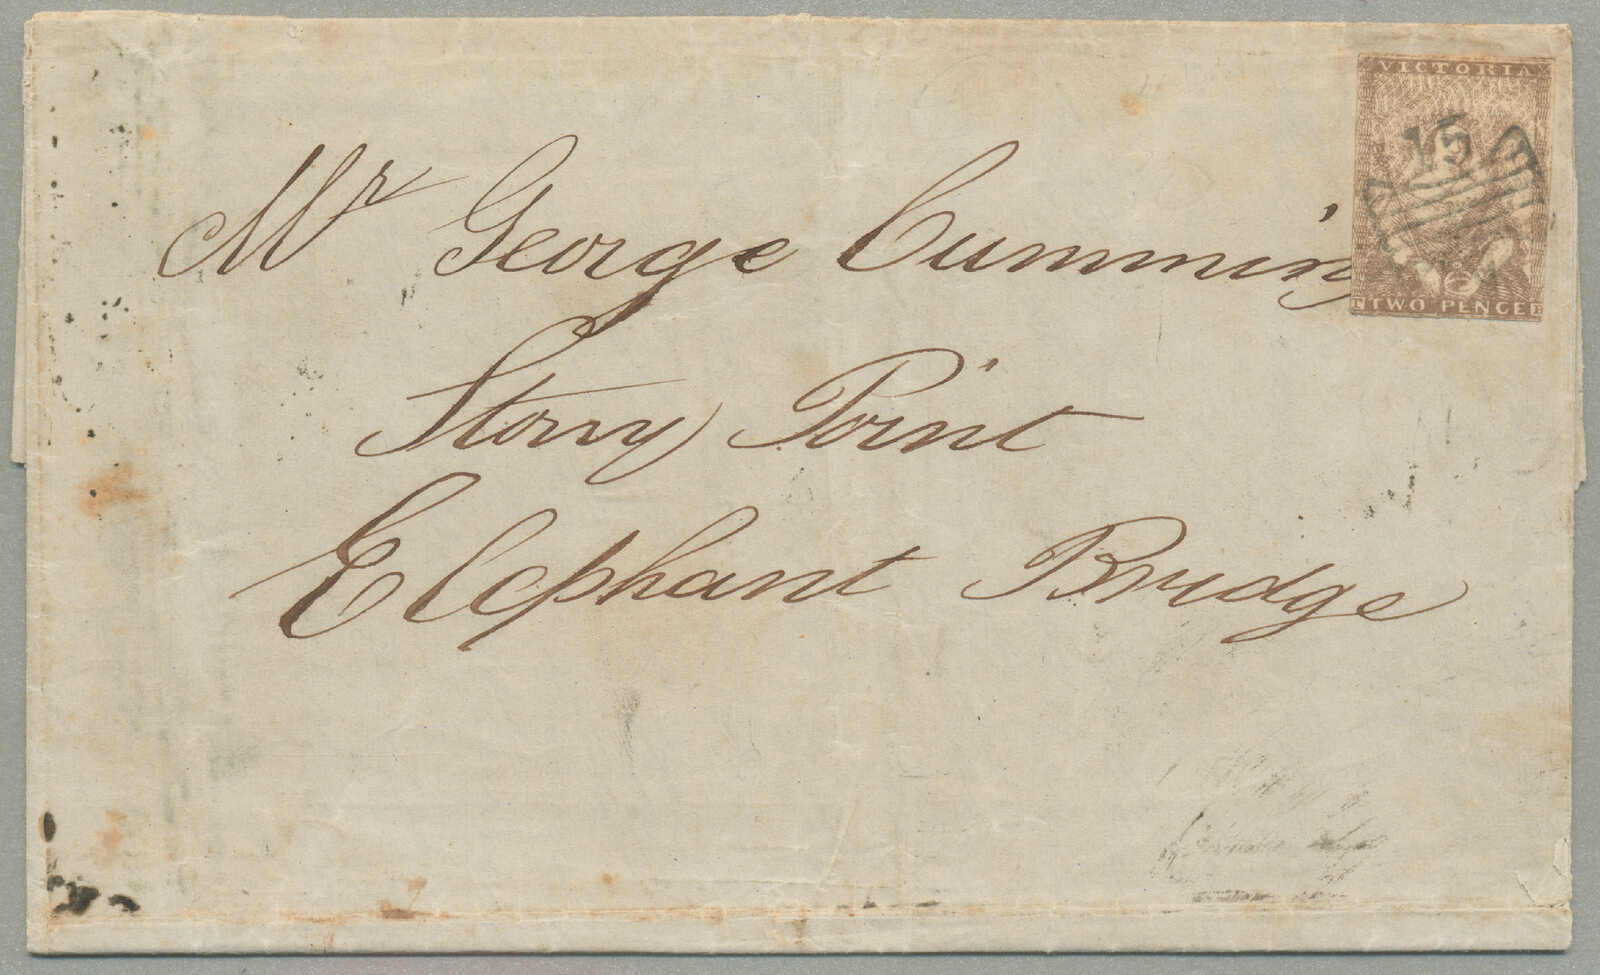 VICTORIA
15
TWO PENCE
Mr George Cumming
Stony Point
Elephant Bridge